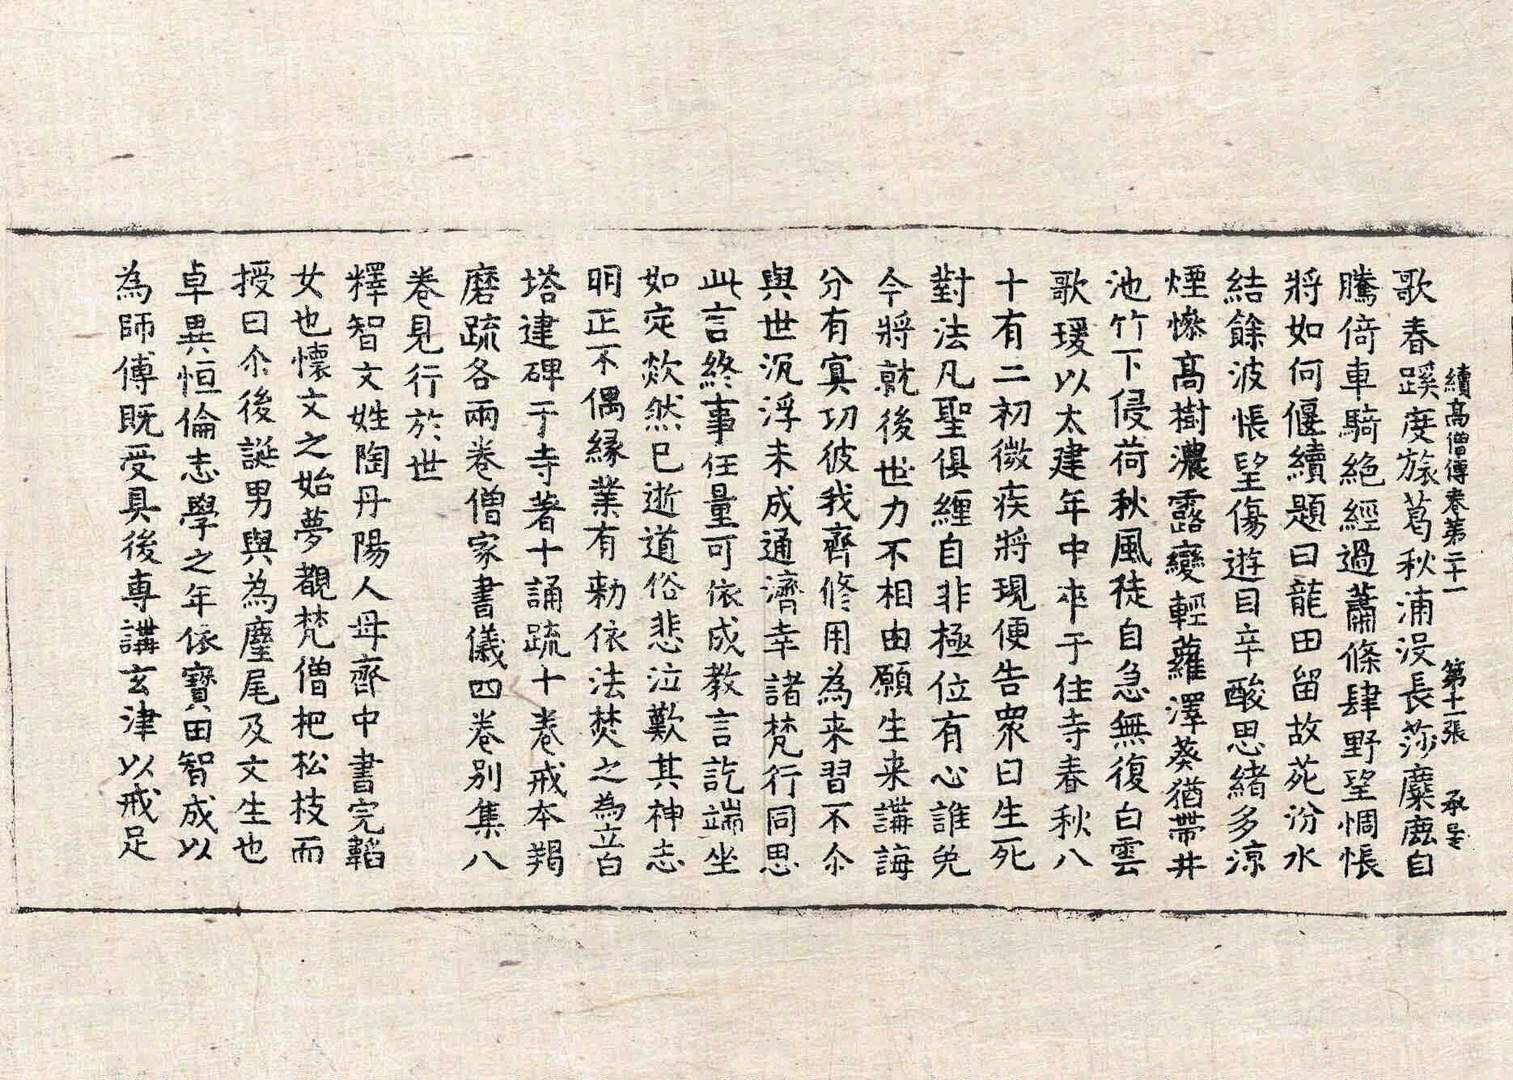 續高僧傳卷第二十一　第十一張　承𠃔
歌春蹊度旅葛秋浦没長莎麋鹿自
騰倚車騎絶經過蕭條肆野望惆悵
將如何偃續題曰龍田留故苑汾水
結餘波悵望傷遊目辛酸思緒多凉
煙慘高樹濃露變輕蘿澤葵猶帶井
池竹下侵荷秋風徒自急無復白雲
歌瑗以太建年中卒于住寺春秋八
十有二初微疾將現便告衆曰生死
對法凡聖俱纏自非極位有心誰免
今將就後世力不相由願生来講誨
分有冥功彼我齊修用為来習不尒
與世沉浮未成通濟幸諸梵行同思
此言終事任量可依成教言訖端坐
如定欻然已逝道俗悲泣歎其神志
明正不偶緣業有勑依法焚之為立白
塔建碑于寺著十誦疏十卷戒本羯
磨疏各兩卷僧家書儀四卷別集八
卷見行於世
釋智文姓陶丹陽人母齊中書完韜
女也懷文之始夢覩梵僧把松枝而
授曰尒後誕男與為麈尾及文生也
卓異恒倫志學之年依寶田智成以
為師傅既受具後專講玄津以戒足